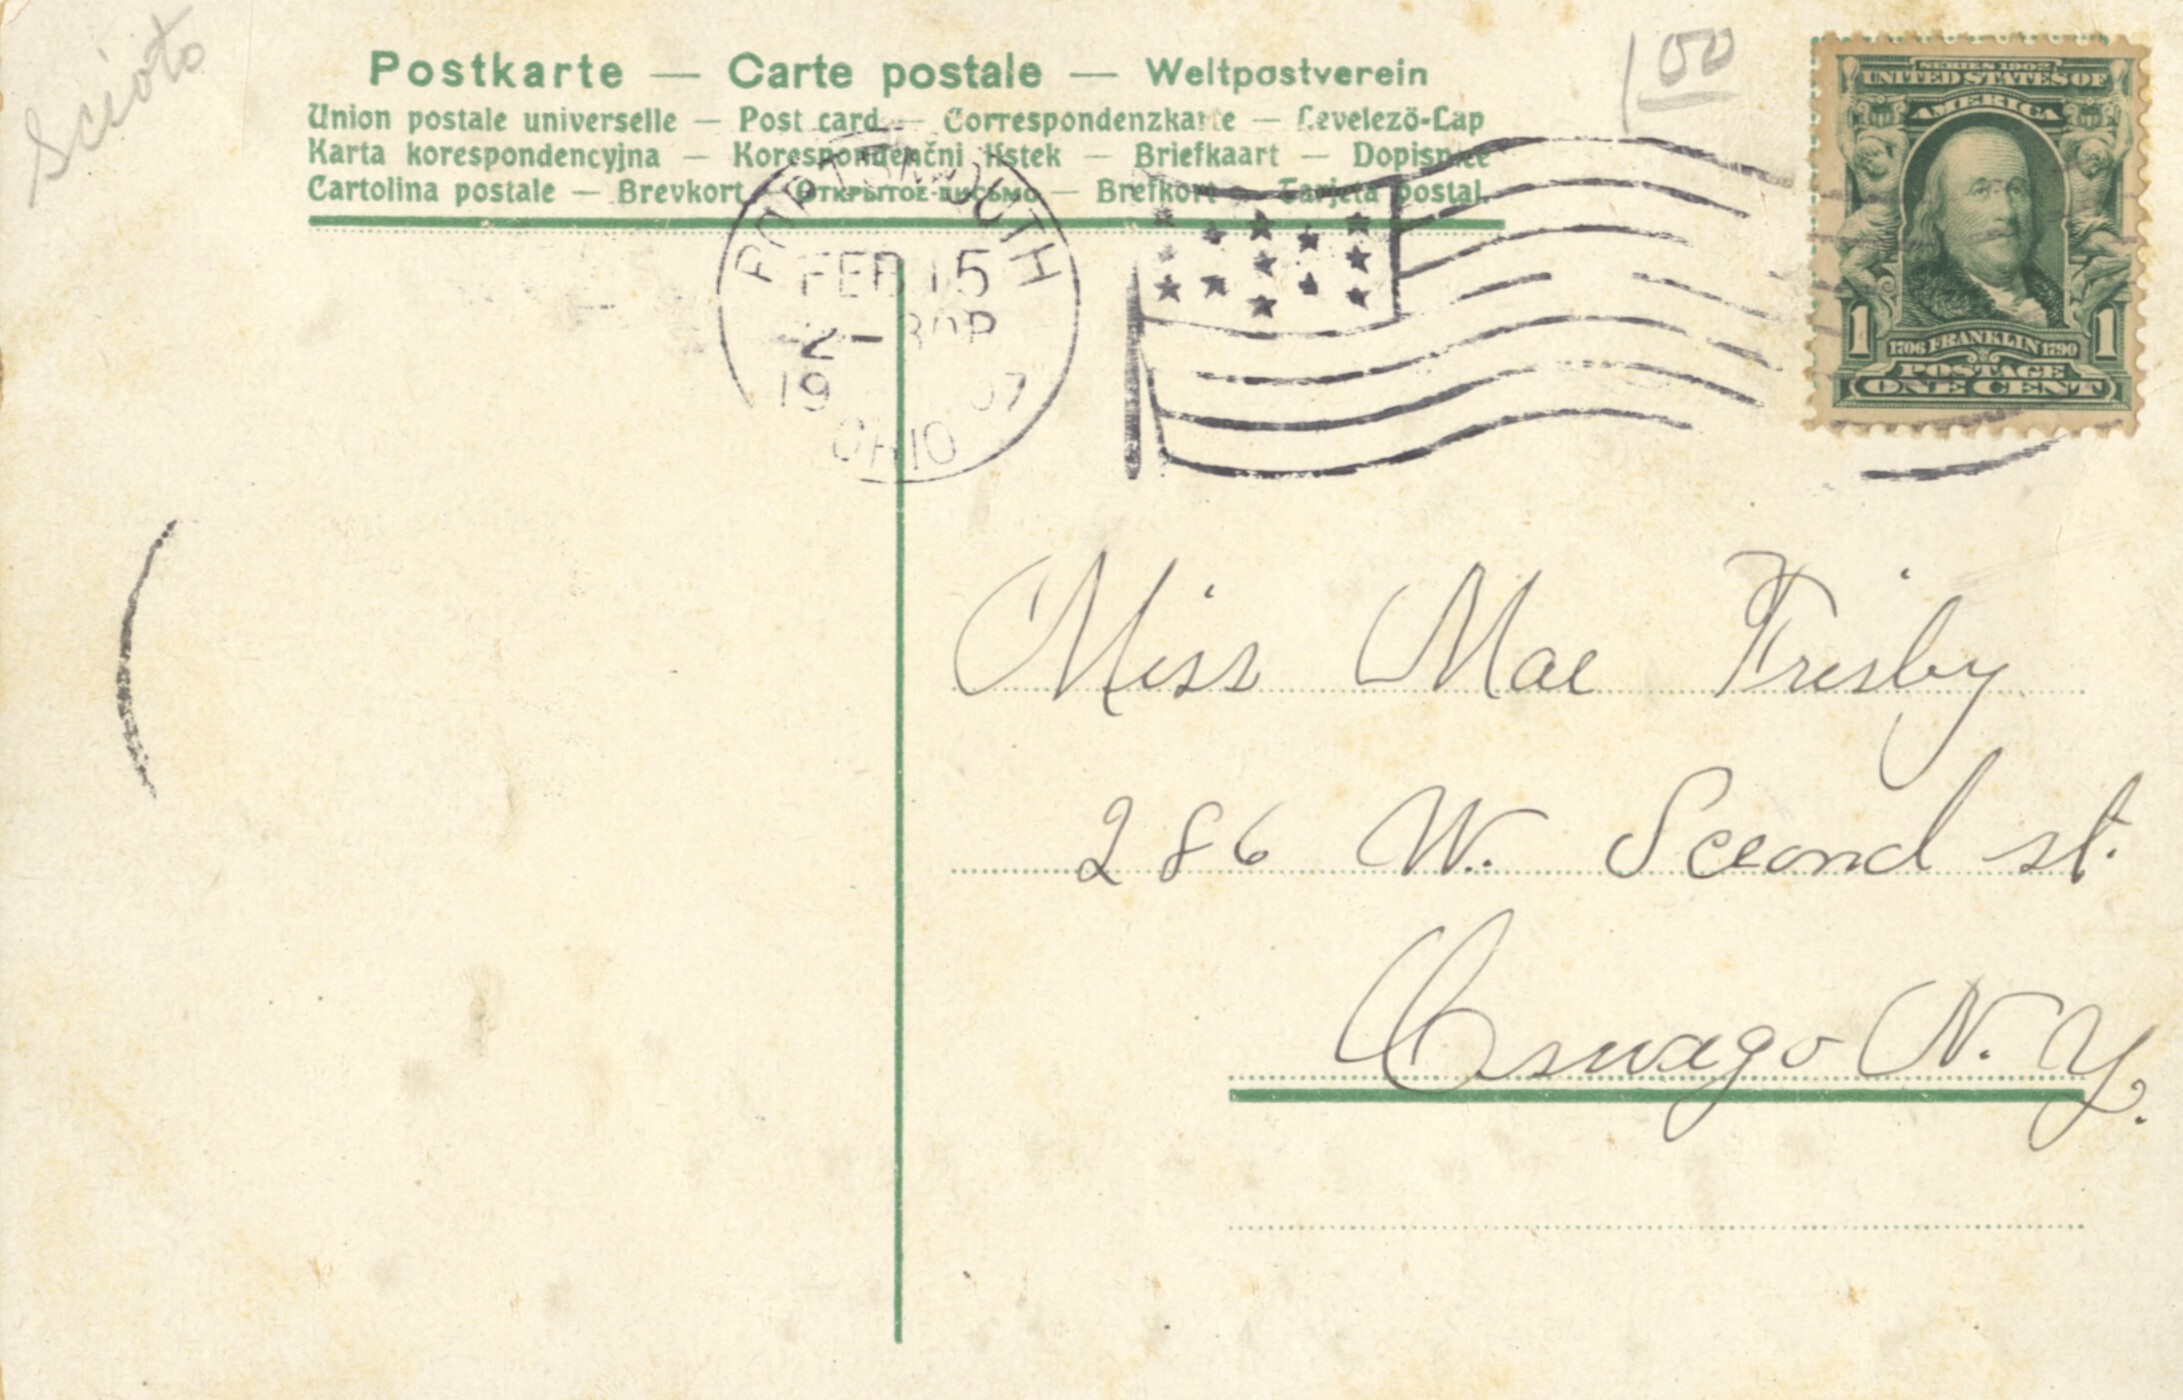 Scioto
1.00
Postkarte — Carte postale — Weltpostverein
Union postale universelle — Post card — Correspondenzkarte — Levelező-Lap
Karta korespondencyjna — Korespondenční lístek — Briefkaart — Dopisnice
Cartolina postale — Brevkort — Открытое письмо — Brefkort — Tarjeta postal.
PORTSMOUTH
FEB 15
2-30P
1907
OHIO
SERIES 1902
UNITED STATES OF
AMERICA
1 1706 FRANKLIN 1790 1
POSTAGE
ONE CENT
Miss Mae Frisby
286 W. Second st.
Oswago N. Y.